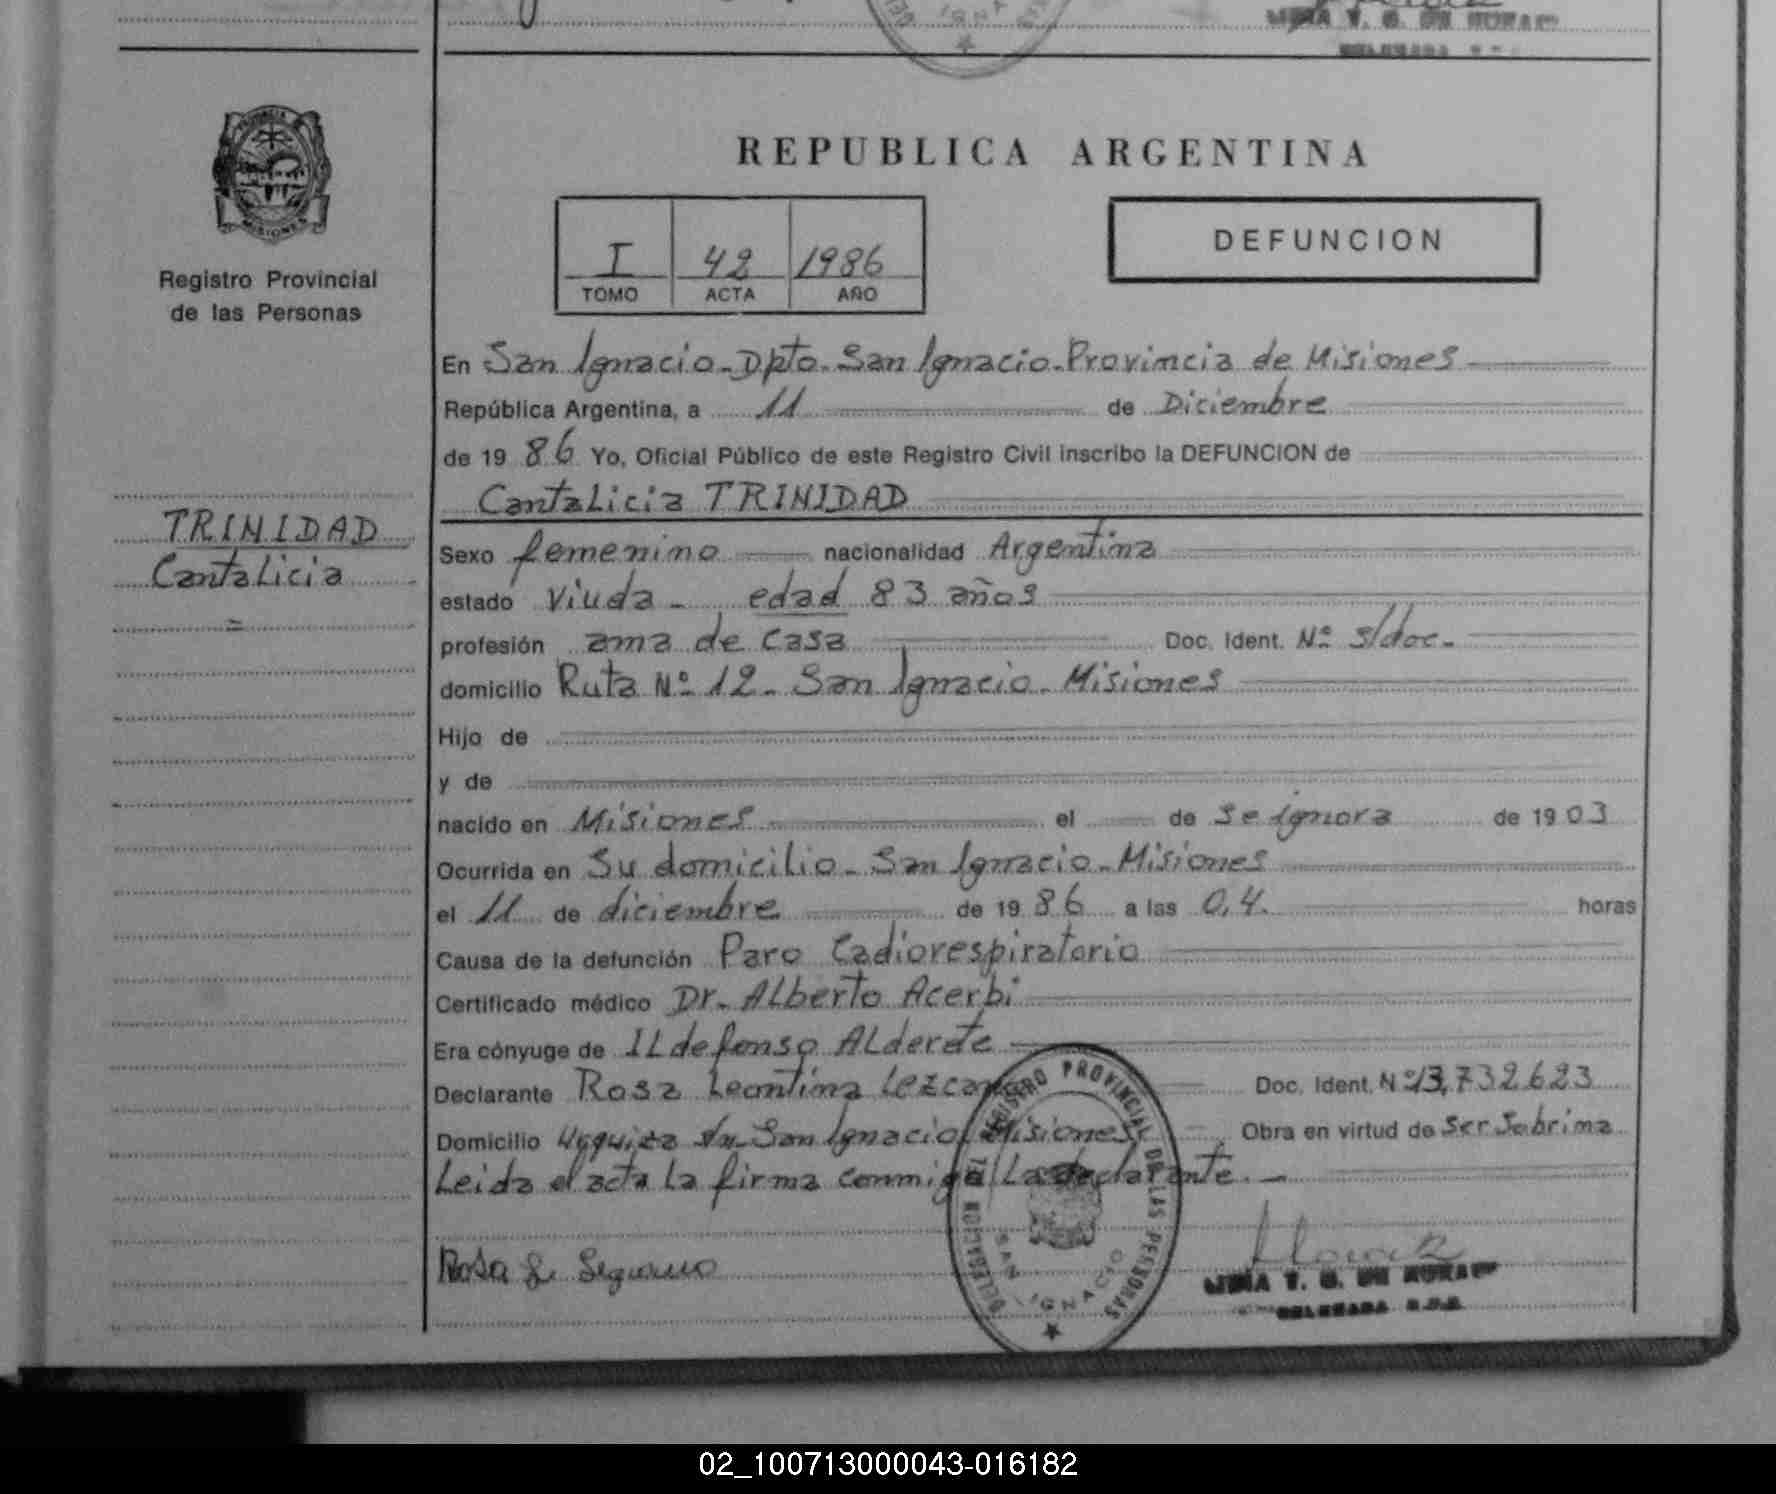 REPUBLICA ARGENTINA
PROVINCIA
MISIONES
Registro Provincial
de las Personas
I 42 1986
TOMO ACTA AÑO
DEFUNCION
En San Ignacio - Dpto. San Ignacio - Provincia de Misiones
República Argentina, a 11 de Diciembre
de 19 86 Yo, Oficial Público de este Registro Civil inscribo la DEFUNCION de
Cantalicia TRINIDAD
TRINIDAD
Cantalicia
Sexo femenino nacionalidad Argentina
estado Viuda - edad 83 años
profesión ama de casa Doc. Ident. Nº s/doc.
domicilio Ruta Nº 12 - San Ignacio - Misiones
Hijo de
y de
nacido en Misiones el de se ignora de 19 03
Ocurrida en Su domicilio - San Ignacio - Misiones
el 11 de diciembre de 19 86 a las 0,4. horas
Causa de la defunción Paro Cadiorespiratorio
Certificado médico Dr. Alberto Acerbi
Era cónyuge de ILdefonso ALderete
Declarante Rosa Leontina Lezcano Doc. Ident. Nº 13,732623
Domicilio Urquiza s/n - San Ignacio - Misiones Obra en virtud de Ser Sobrina
Leida el acta la firma conmigo La declarante. -
DELEGACION DEL REGISTRO PROVINCIAL DE LAS PERSONAS
SAN IGNACIO
Rosa L.
DELEGADA
02_100713000043-016182